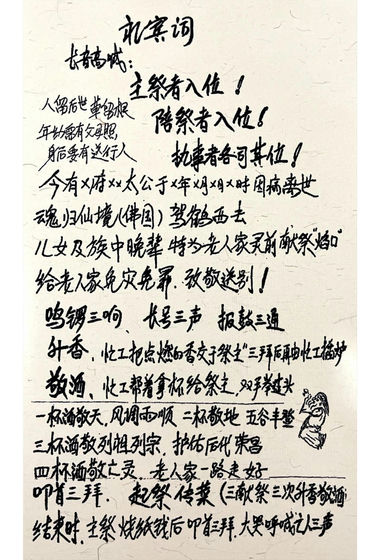 礼宾词
长音高喊:
主祭者入位!
人留后世草留根
陪祭者入位!
年幼需有父母照
身后要有送行人
执事者各司其位!
今有×府××太公于×年×月×日×时因病离世
魂归仙境(佛国)驾鹤西去
儿女及族中晚辈特为老人家灵前献祭"焰口"
给老人家免灾免罪、致敬送别!
鸣锣三响、长号三声 报鼓三通
升香、忙工把点燃的香交于祭主"三拜后再由忙工插炉
敬酒、忙工帮着拿杯给祭主,双手举过头
一杯酒敬天,风调雨顺 二杯敬地 五谷丰登
三杯酒敬列祖列宗,护佑后代荣昌
四杯酒敬亡灵、老人家一路走好
叩首三拜、起祭传菜(三献祭三次升香敬酒)
结束时,主祭烧纸钱后叩首三拜,大哭呼喊亡人三声